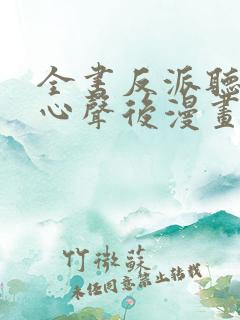 全書反派聽
心聲後漫畫
竹微蘇
未經同意禁止轉載